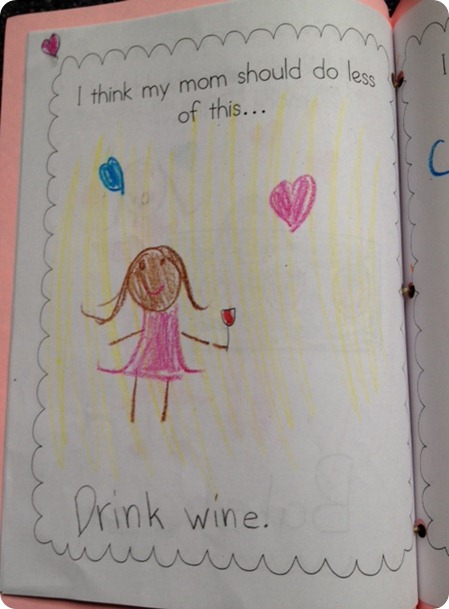 I think my mom should do less
of this...
Drink wine.
I